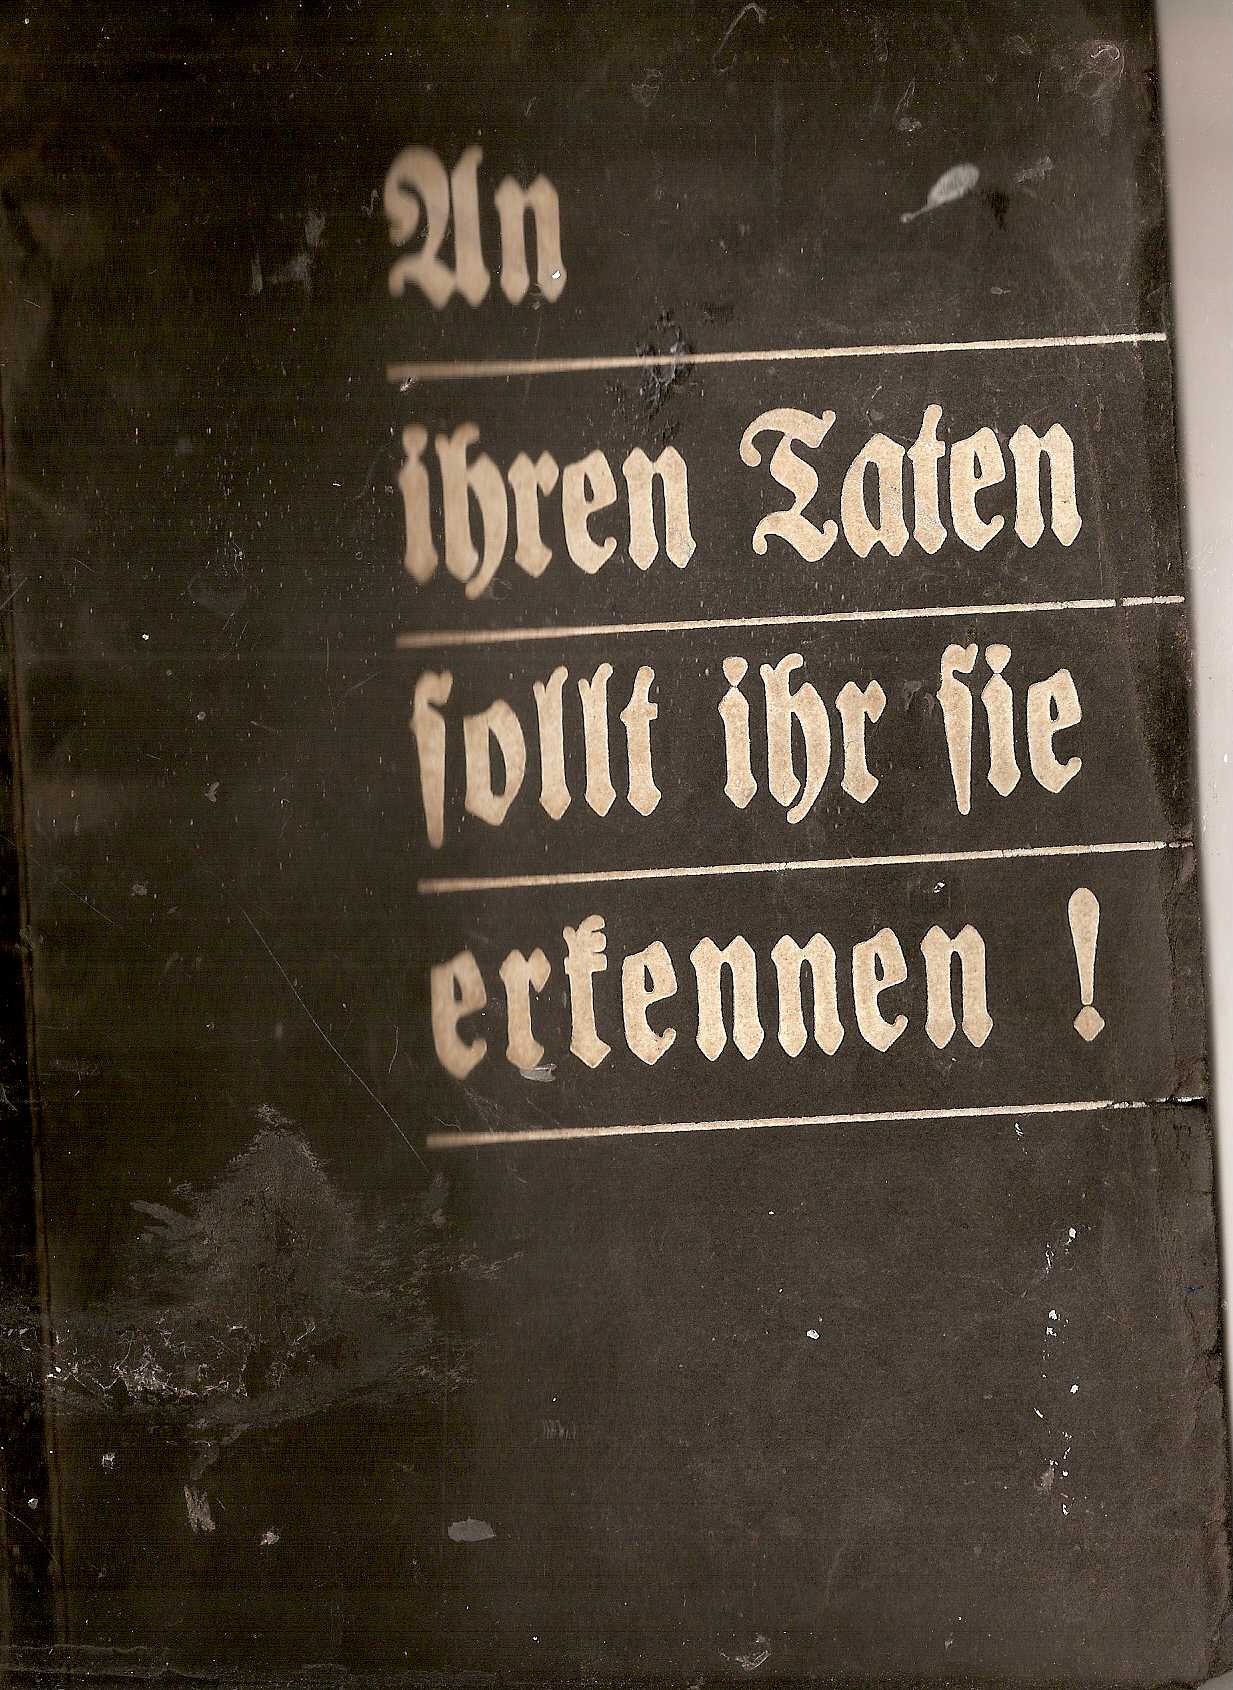 An
ihren Taten
sollt ihr sie
erkennen !